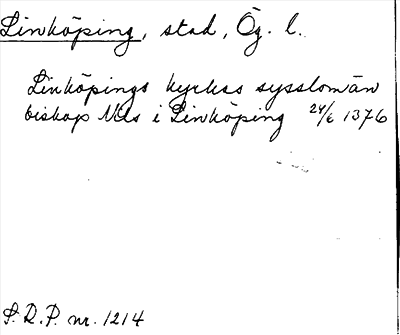 Linköping, stad, Ög. l.
Linköpings kyrkas sysslomän
biskop Nils i Linköping 24/6 1376
S.R.P. nr. 1214